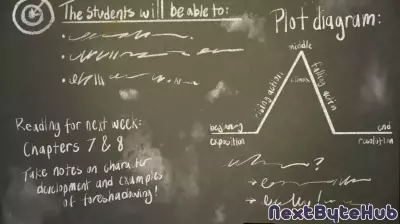 The students will be able to:
Plot diagram:
middle
climax
rising action
falling action
beginning
exposition
end
resolution
Reading for next week:
Chapters 7 & 8
Take notes on character
development and examples
of foreshadowing!
NextByteHub